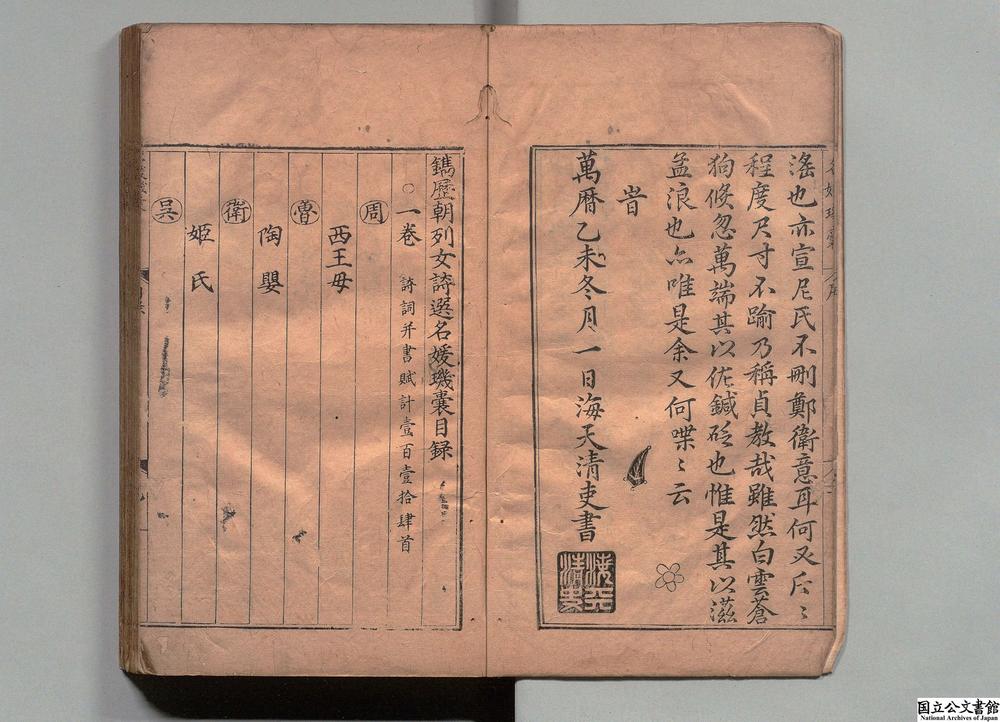 滛也亦宣尼氏不刪鄭衛意耳何又斤〻
程度尺寸不踰乃稱貞教哉雖然白雲蒼
狗倏忽萬端其以佐鍼砭也惟是其以滋
孟浪也亦唯是余又何喋〻云
旹
萬曆乙未冬月一日海天清吏書
鐫歷朝列女詩選名媛璣囊目録
○一卷 詩詞并書賦計壹百壹拾肆首
周
西王母
魯
陶嬰
衛
姬氏
吳
国立公文書館
National Archives of Japan